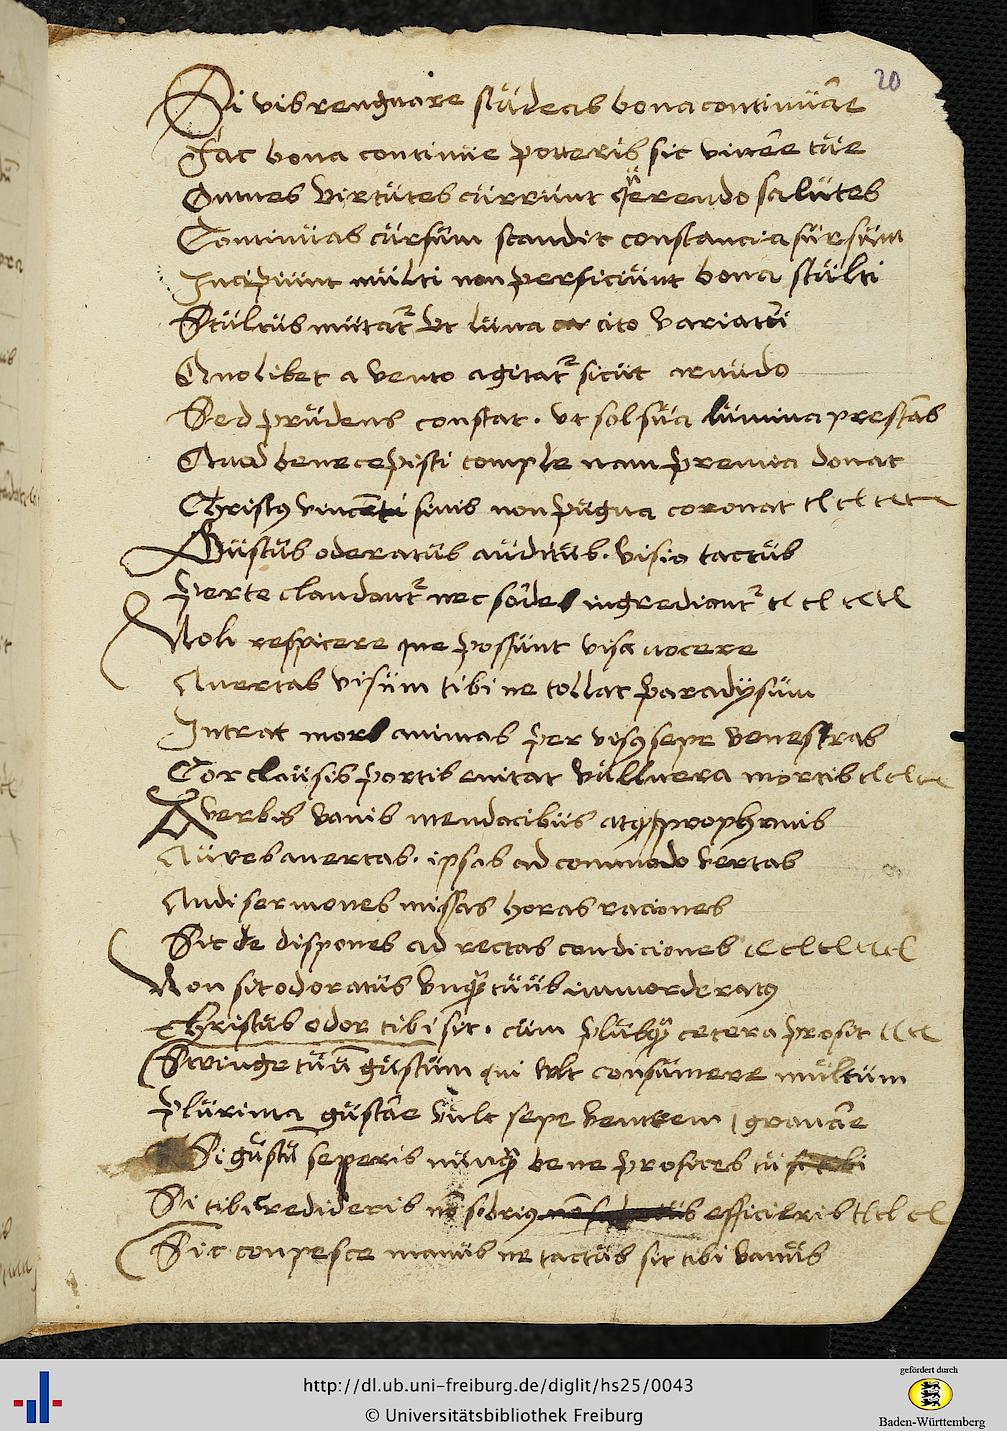 20
Si vis rengnare stŭdeas bona continŭare
Fac bona continŭe poteris sic vincere tŭte
Omnes virtŭtes cŭrrŭnt qŭerendo salŭtes
Continŭas cŭrsŭm scandit constancia sŭrsŭm
Incipiŭnt mŭlti non perficiŭnt bona stŭlti
Stŭltŭs mŭtat᷑ vt lŭna cito variat᷑
Quolibet a vento agitat᷑ sicŭt arŭndo
Sed prŭdens constat. vt sol sŭa lŭmina prestans
Quod bene cepisti comple nam premia donat
Christꝰ vincenti finis non pŭgna coronat
Gŭstŭs oderatŭs aŭditŭs. visio tactŭs
Per te claudant᷑ nec sordes ingrediant᷑
Noli respicere que possŭnt visa nocere
Auertas visŭm tibi ne tollat paradysŭm
Intrat mors animas per visꝰ sepe venestras
Cor claŭsis portis euitat vŭllnera mortis
A verbis vanis mendacibŭs atqꝫ prophanis
Aŭres auertas. ipsas ad commodo vertas
Audi sermones missas horas raciones
Sic te dispones ad rectas condiciones
Non sit odoratŭs vnqꝫ tŭŭs immorderatꝰ
Christŭs odor tibi sit. cŭm plŭsqꝫ cetera prosit
Stringe tŭū gŭstŭm qui vlt consŭmere mŭltŭm
Plŭrima gŭstare vŭlt sepe ventrem grauare
Si gŭstŭ seperis nŭnqꝫ bene proficies tŭ
Si tibi credideris nō sobriꝰ efficieris
Sic conpesce manŭs ne tactŭs sit tibi vanŭs
http://dl.ub.uni-freiburg.de/diglit/hs25/0043
© Universitätsbibliothek Freiburg
gefördert durch
Baden-Württemberg